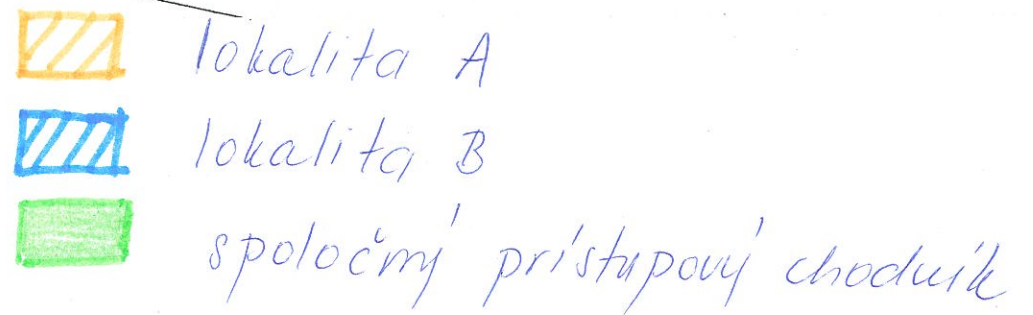 lokalita A
lokalita B
spoločný prístupový chodník